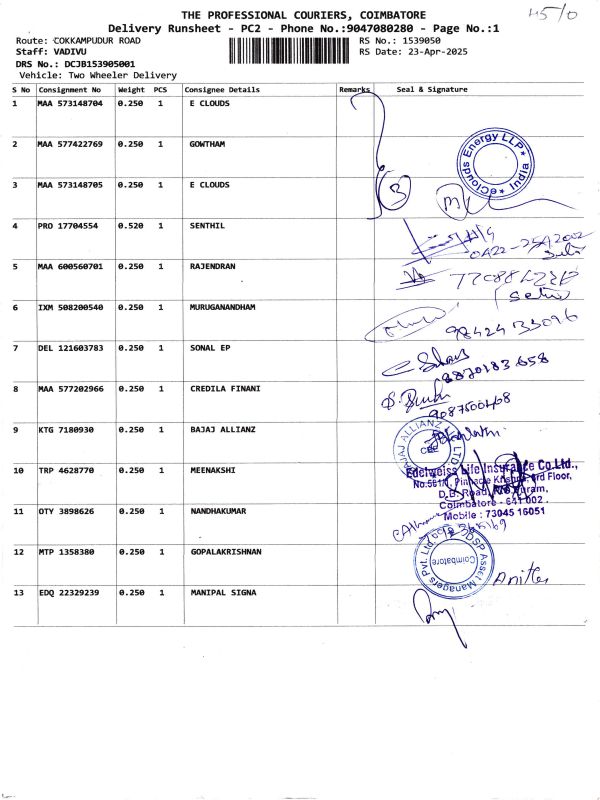 45/0
THE PROFESSIONAL COURIERS, COIMBATORE
Delivery Runsheet - PC2 - Phone No.:9047080280 - Page No.:1
Route: COKKAMPUDUR ROAD RS No.: 1539050
Staff: VADIVU RS Date: 23-Apr-2025
DRS No.: DCJB153905001
Vehicle: Two Wheeler Delivery
S No Consignment No Weight PCS Consignee Details Remarks Seal & Signature
1 MAA 573148704 0.250 1 E CLOUDS
2 MAA 577422769 0.250 1 GOWTHAM
eClouds Energy LLP * India *
3 MAA 573148705 0.250 1 E CLOUDS
3
4 PRO 17704554 0.520 1 SENTHIL
5 MAA 600560701 0.250 1 RAJENDRAN
6 IXM 508200540 0.250 1 MURUGANANDHAM
98424 33096
7 DEL 121603783 0.250 1 SONAL EP
8870183658
8 MAA 577202966 0.250 1 CREDILA FINANI
9 KTG 7180930 0.250 1 BAJAJ ALLIANZ
BAJAJ ALLIANZ
CBE
Edelweiss Life Insurance Co.Ltd.,
10 TRP 4628770 0.250 1 MEENAKSHI
3rd Floor,
D.B. Road,
Coimbatore - 641 002.
11 OTY 3898626 0.250 1 NANDHAKUMAR
Mobile : 73045 16051
12 MTP 1358380 0.250 1 GOPALAKRISHNAN
DSP Asset Managers Pvt. Ltd.
Coimbatore
13 EDQ 22329239 0.250 1 MANIPAL SIGNA